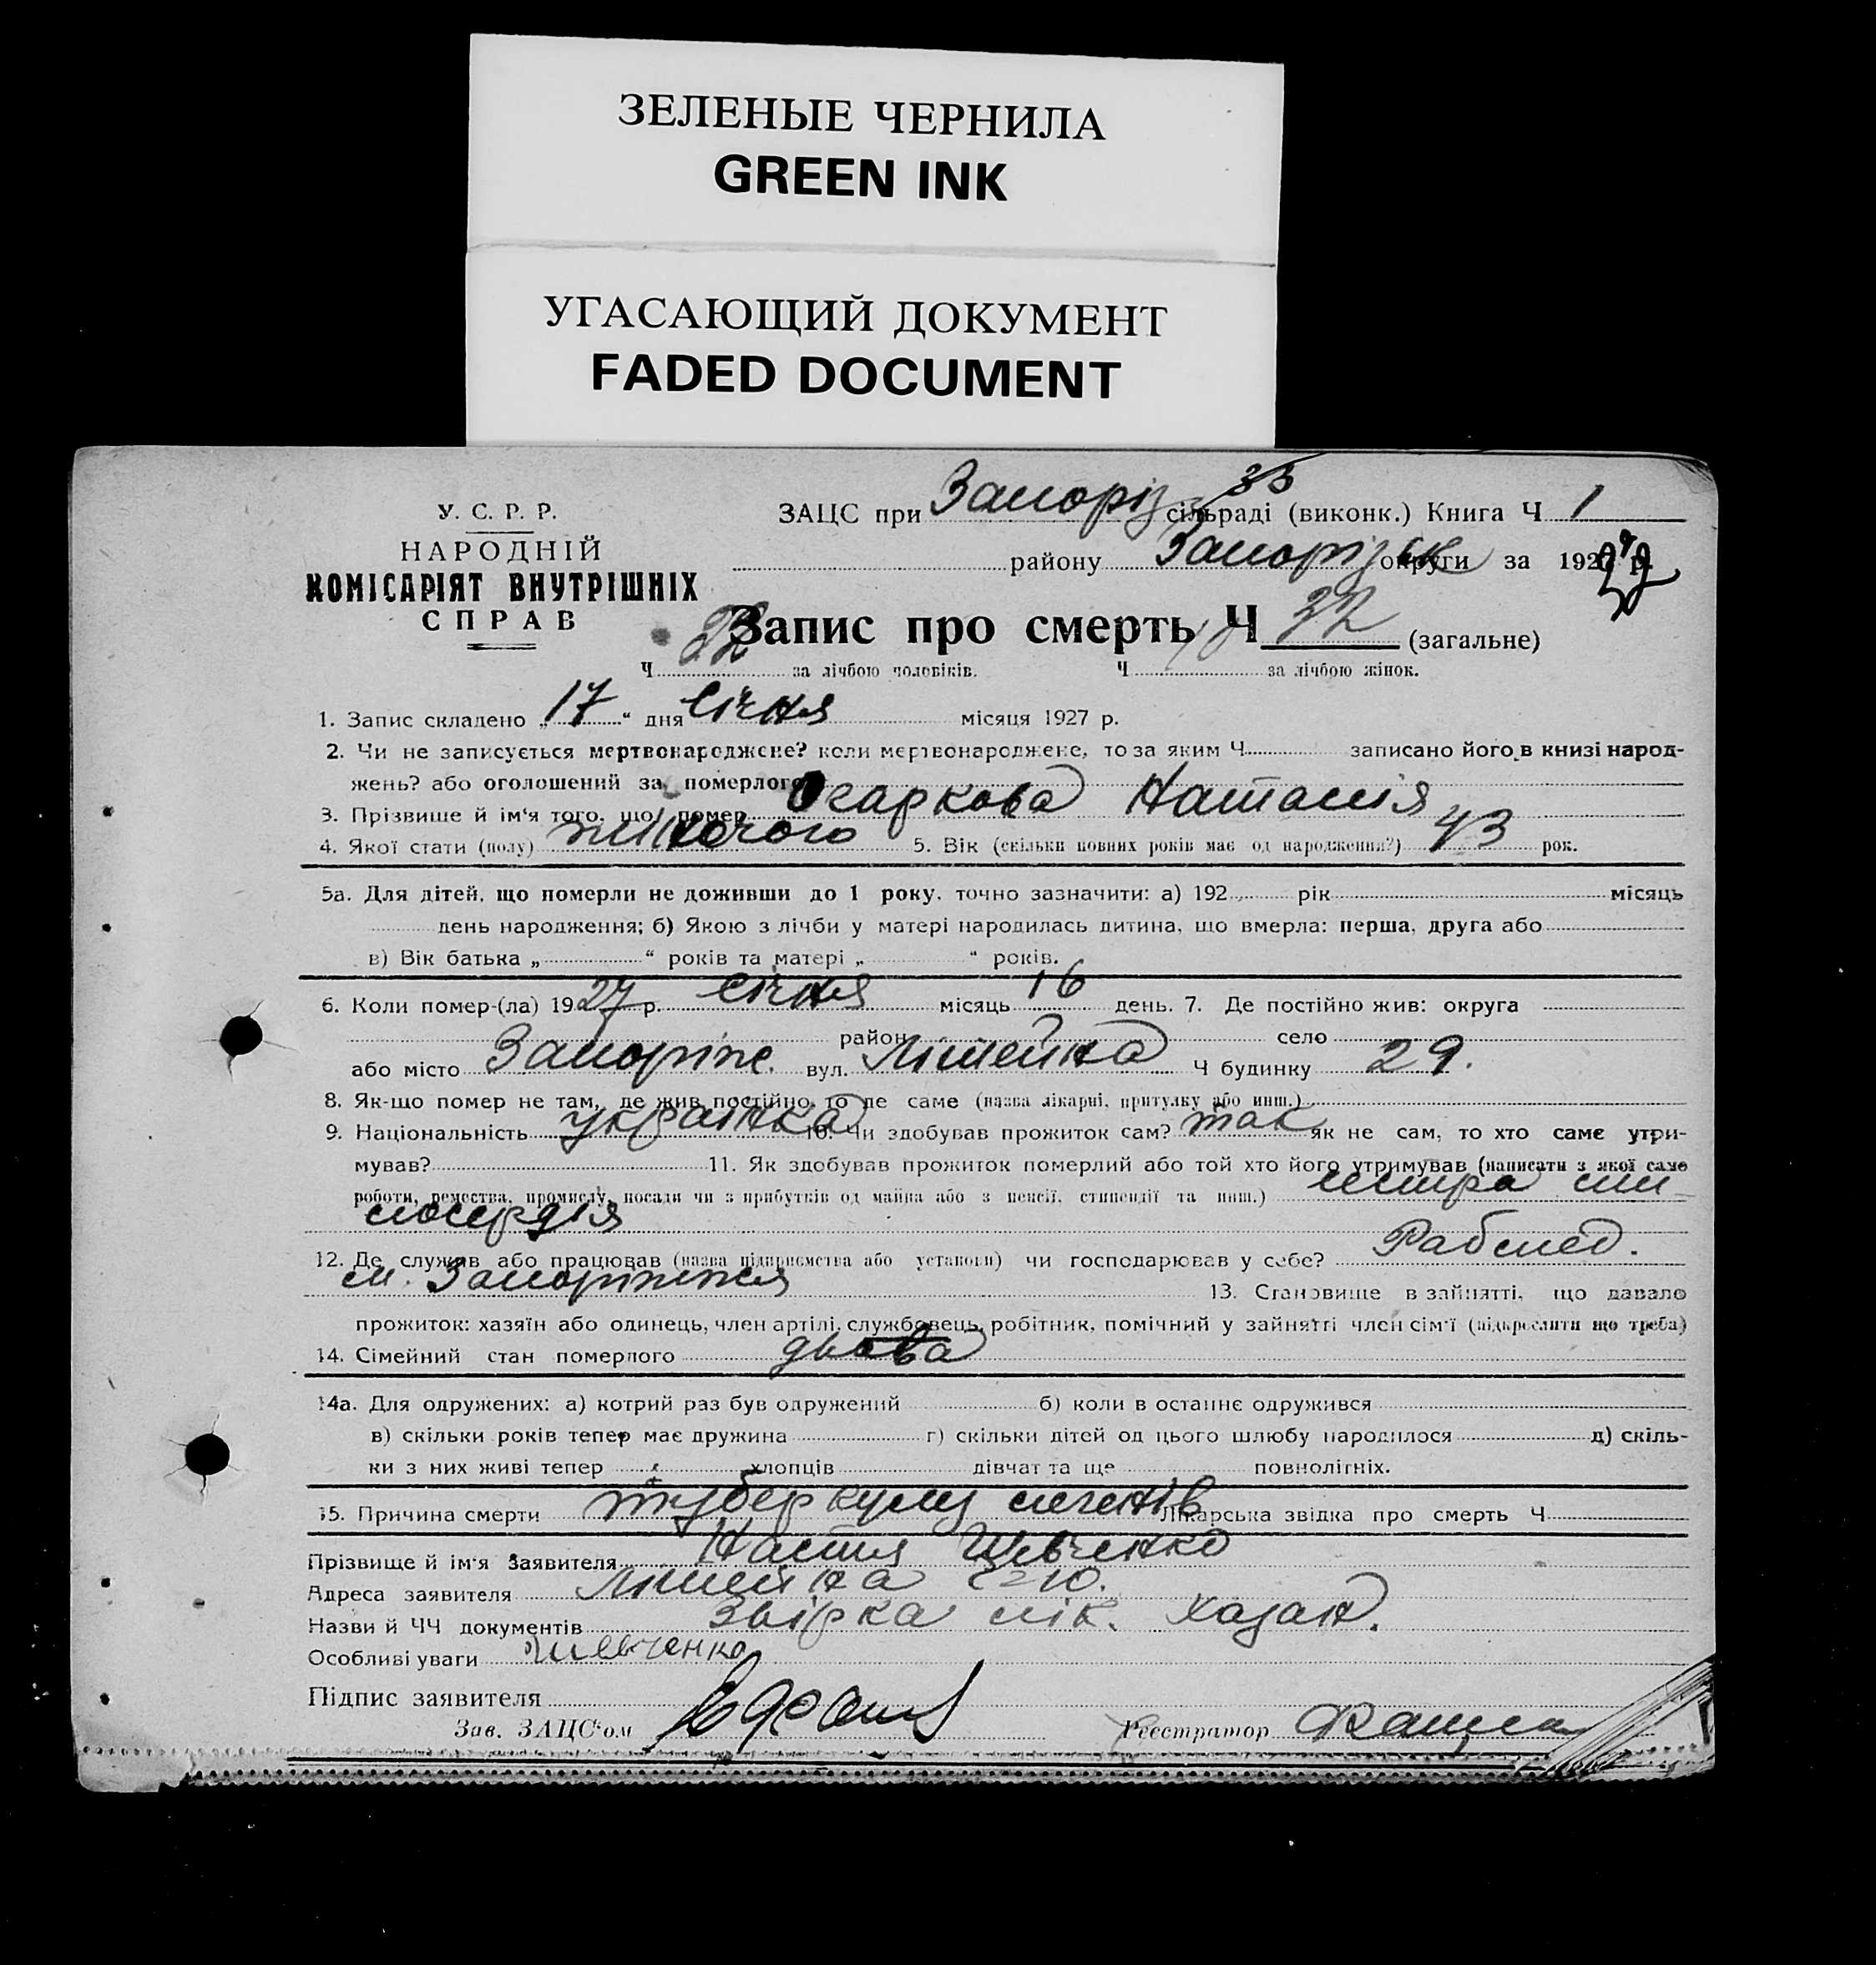 ЗЕЛЕНЫЕ ЧЕРНИЛА
GREEN INK
УГАСАЮЩИЙ ДОКУМЕНТ
FADED DOCUMENT
33
У. С. Р. Р.
НАРОДНІЙ
КОМІСАРІЯТ ВНУТРІШНІХ
СПРАВ
ЗАЦС при Запоріз сільраді (виконк.) Книга Ч 1
району Запорізьк округи за 1927 р.
Запис про смерть Ч 32 (загальне)
Ч 22 за лічбою чоловіків. Ч 10 за лічбою жінок.
1. Запис складено „17“ дня Січня місяця 1927 р.
2. Чи не записується мертвонароджене? коли мертвонароджене, то за яким Ч записано його в книзі народ-
жень? або оголошений за померлого
3. Прізвище й ім'я того, що помер Огаркова Наталія
4. Якої стати (полу) жіночого 5. Вік (скільки повних років має од народження?) 43 рок.
5а. Для дітей, що померли не доживши до 1 року, точно зазначити: а) 192 рік місяць
день народження; б) Якою з лічби у матері народилась дитина, що вмерла: перша, друга або
в) Вік батька „ “ років та матері „ “ років.
6. Коли помер-(ла) 1927 р. Січня місяць 16 день. 7. Де постійно жив: округа
район село
або місто Запоріже. вул. Лінейна Ч будинку 29.
8. Як-що помер не там, де жив постійно, то де саме (назва лікарні, притулку або инш.)
9. Національність українка 10. Чи здобував прожиток сам? так як не сам, то хто саме утри-
мував? 11. Як здобував прожиток померлий або той хто його утримував (написати з якої саме
роботи, ремества, промислу, посади чи з прибутків од майна або з пенсії, стипендії та инш.) сестра ми
лосердія
12. Де служив або працював (назва підприємства або установи) чи господарював у себе? Рабмед.
м. Запоріжжя 13. Становище в зайнятті, що давало
прожиток: хазяїн або одинець, член артілі, службовець, робітник, помічний у зайнятті член сім'ї (підкреслити що треба)
14. Сімейний стан померлого вдова
14а. Для одружених: а) котрий раз був одружений б) коли в останнє одружився
в) скільки років тепер має дружина г) скільки дітей од цього шлюбу народилося д) скіль-
ки з них живі тепер хлопців дівчат та ще повнолітніх.
15. Причина смерти туберкульоз легенів Лікарська звідка про смерть Ч
Прізвище й ім'я заявителя Настя Шевченко
Адреса заявителя Лінейна
Назви й ЧЧ документів Звірка лік. Хазан.
Особливі уваги Шевченко
Підпис заявителя
Зав. ЗАЦС'ом Реєстратор